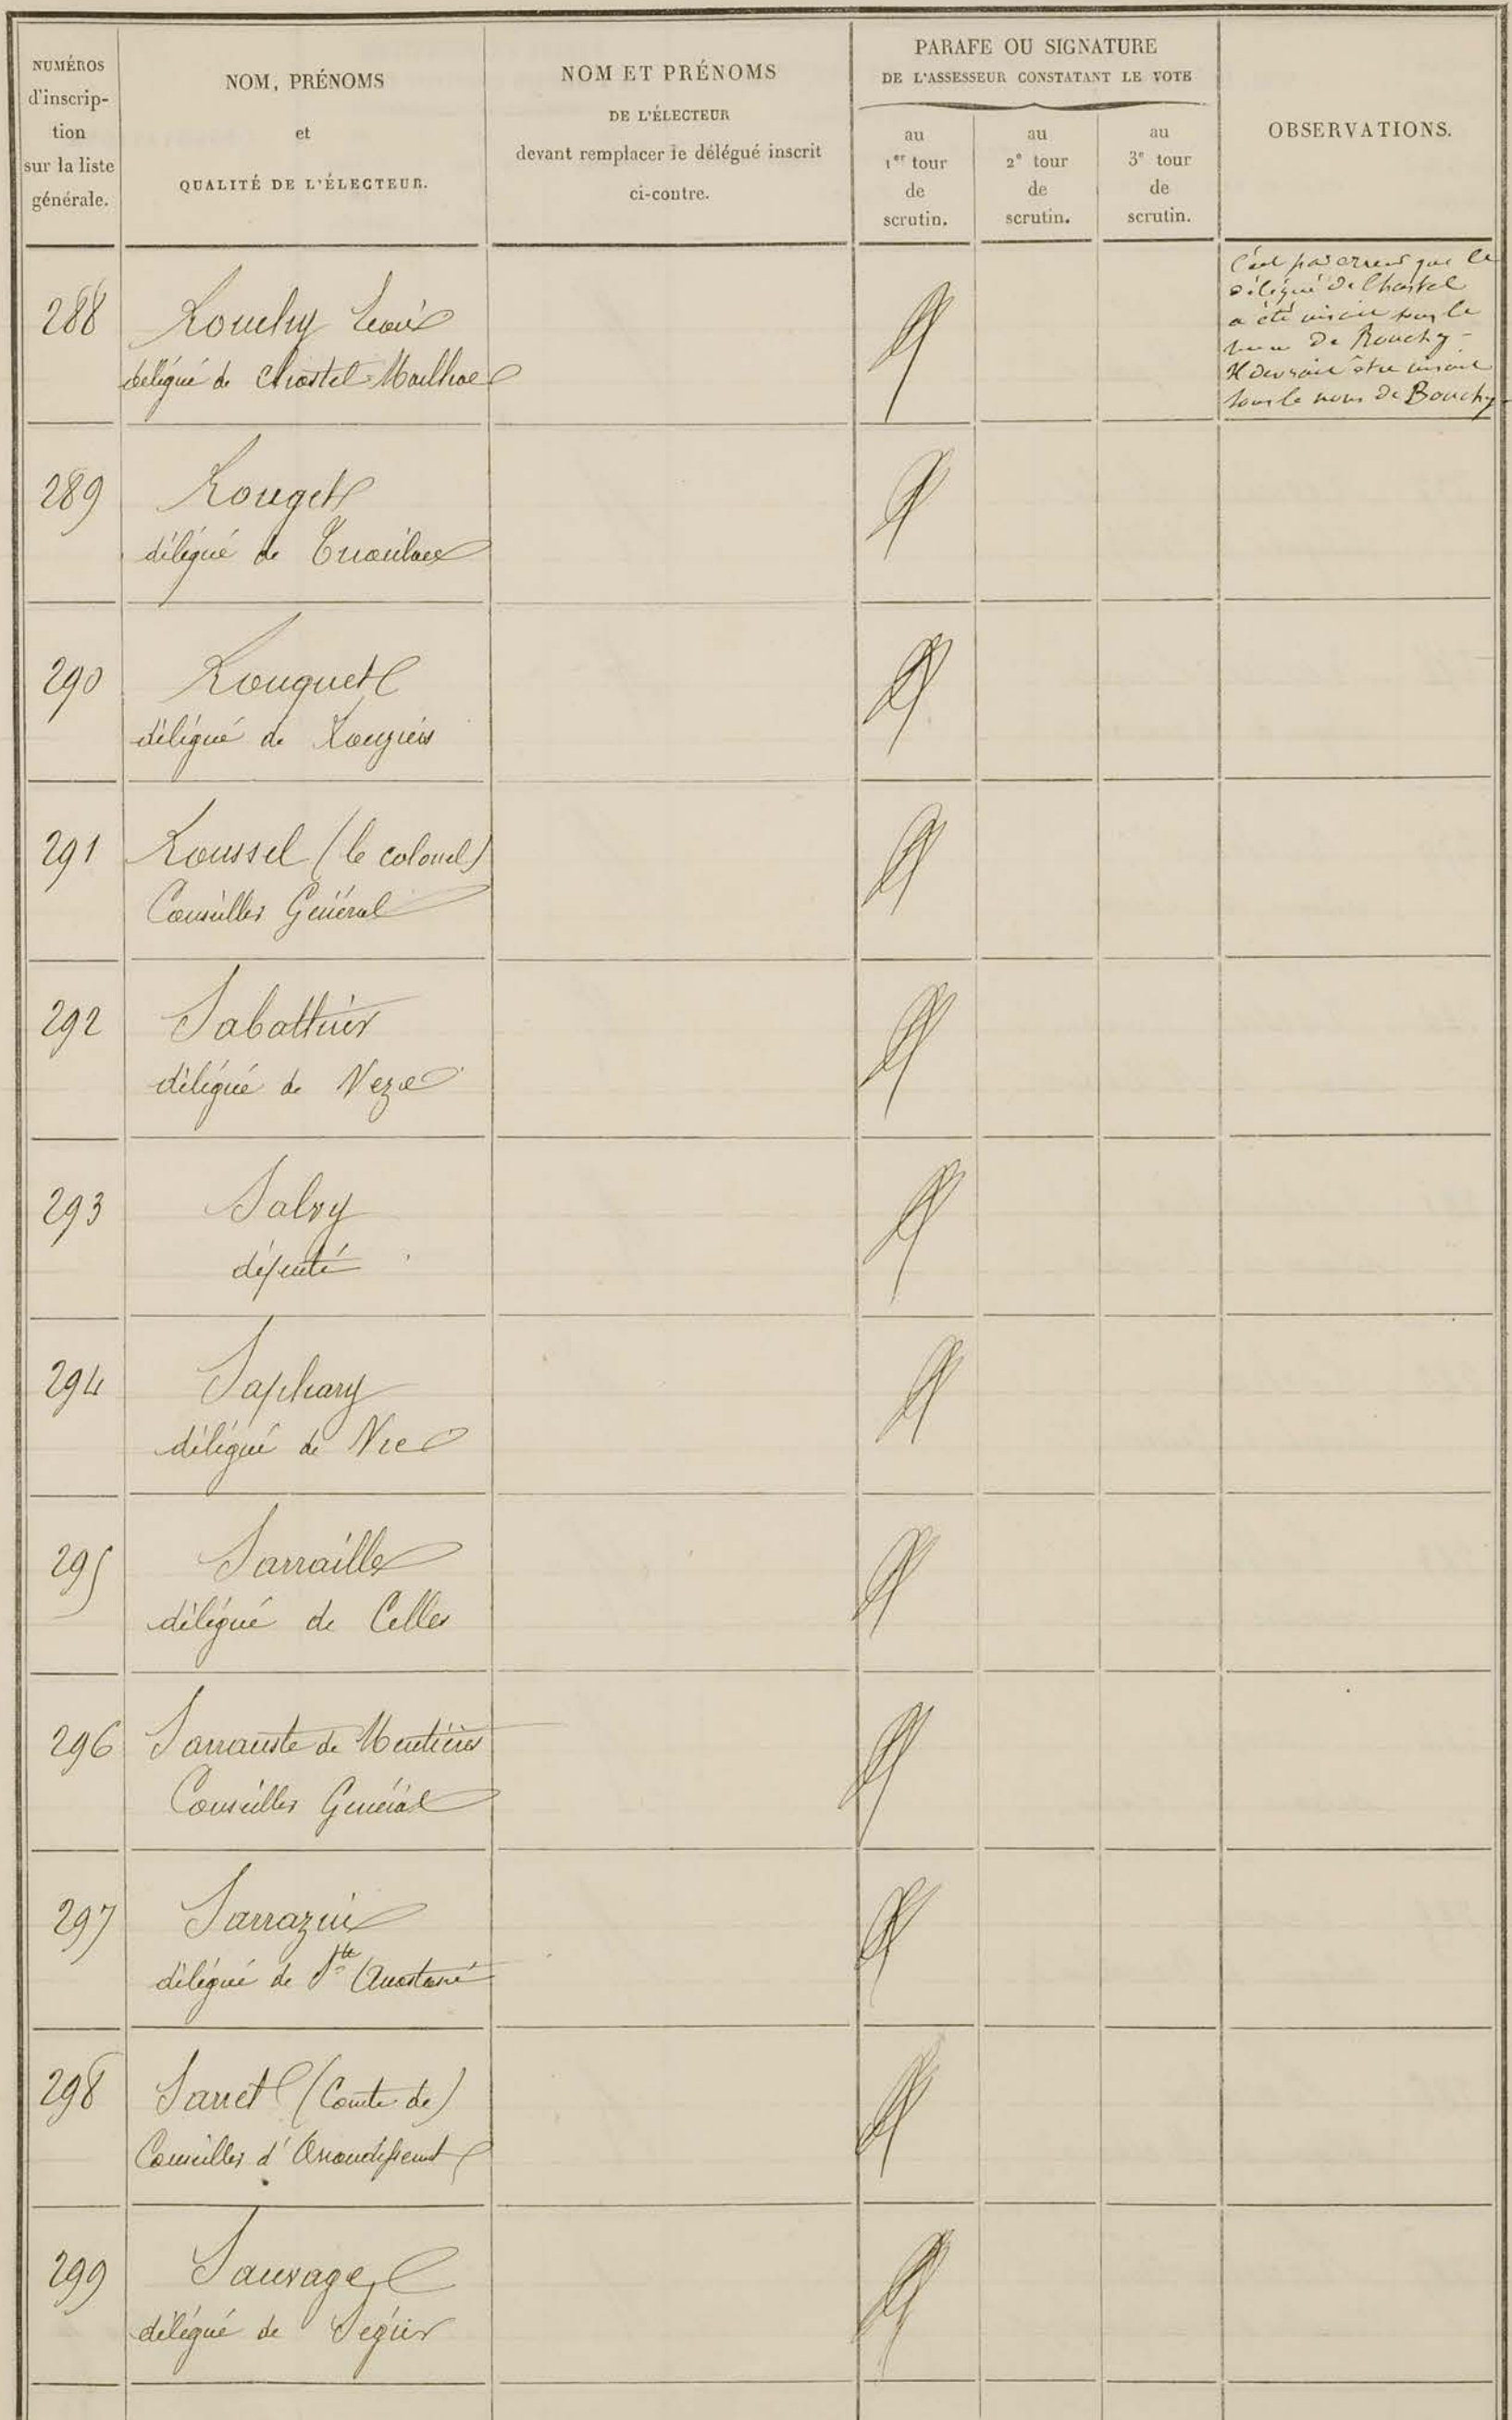 NUMÉROS
d'inscrip-
tion
sur la liste
générale.
NOM, PRÉNOMS
et
QUALITÉ DE L'ÉLECTEUR.
NOM ET PRÉNOMS
DE L'ÉLECTEUR
devant remplacer le délégué inscrit
ci-contre.
PARAFE OU SIGNATURE
DE L'ASSESSEUR CONSTATANT LE VOTE
au
1er tour
de
scrutin.
au
2e tour
de
scrutin.
au
3e tour
de
scrutin.
OBSERVATIONS.
288
Rouchy Louis
délégué de Chastel Marlhac
C'est par erreur que le
délégué de Chastel
a été inscrit sous le
nom de Rouchy -
Il devrait être inscrit
sous le nom de Bouchy
289
Rouget
délégué de Trioulou
290
Rouquet
délégué de Rouziers
291
Roussel (le colonel)
Conseiller Général
292
Sabatier
délégué de Veze
293
Salvy
député
294
Saphary
délégué de Vic
295
Sarraille
délégué de Celles
296
Sarrauste de Mentières
Conseiller Général
297
Sarrazin
délégué de Ste Anastasie
298
Sarret (Comte de)
Conseiller d'Arrondissement
299
Sauvage
délégué de Ségur